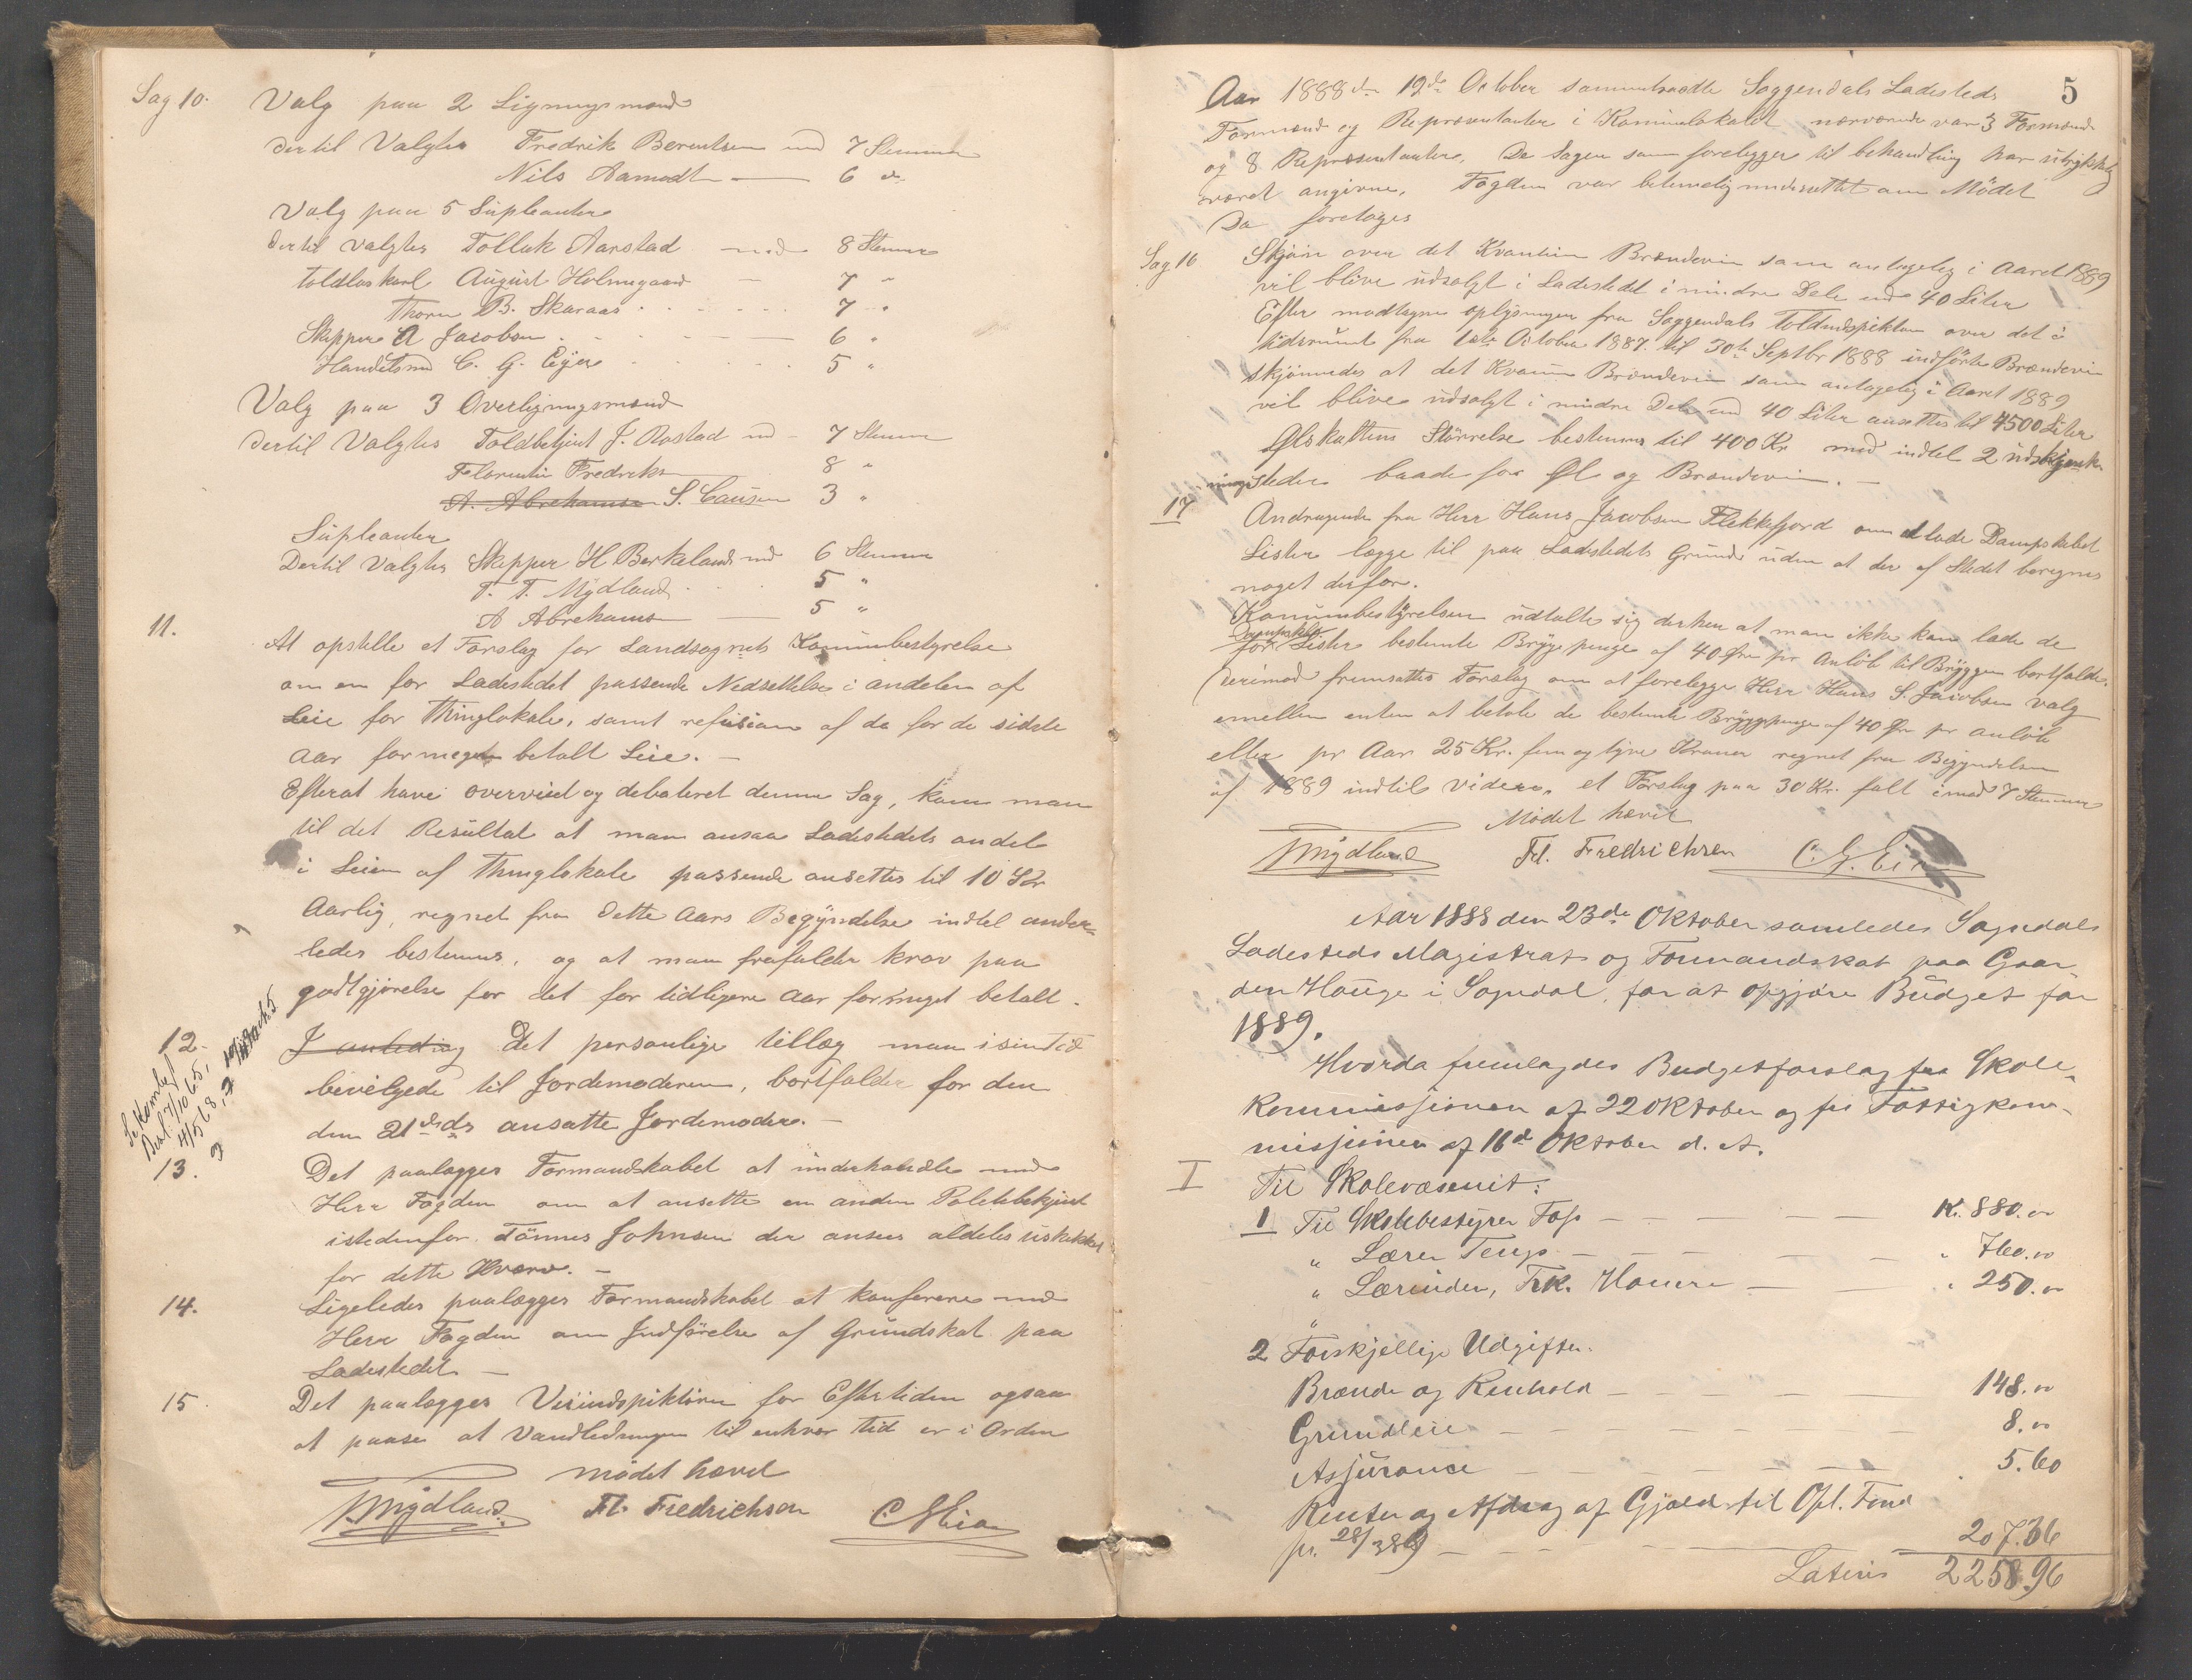 Sag 10. Valg paa 2 Ligningsmænd
dertil Valgtes Fredrik Berentsen med 7 Stemmer
Nils Aamodt — 6 do
Valg paa 5 Supleanter
dertil valgtes Tollak Aarstad med 8 Stemmer
August Holmegaard — 7 "
Thorn B. Skaraas 7 "
Skipper A Jacobsen 6 "
Handelsmd C. G. Eger 5 "
Valg paa 3 Overligningsmænd
dertil Valgtes Toldbetjent J. Rostad md - 7 Stemmer
Florentin Fredriks 8 "
A. Abrehamsen S. Causen 3 "
Supleanter
Dertil Valgtes Skipper H Berkeland md 6 Stemmer
T. T. Mydland 5 "
A Abrehams — 5 "
11. At opstille et Forslag for Landsognets Kommunbestyrelse
om en for Ladestedet passende Nedsettelse i andelen af
Leie for Thinglokale, samt refusion af de for de sidste
aar formeget betalt Leie. —
Efterat have overveiet og debateret denne Sag, kom man
til det Resultat at man ansaa Ladestedets andel
i Leien af Thinglokale passende ansettes til 10 Kr
Aarlig, regnet fra dette Aars Begyndelse indtil ander-
ledes bestemmes, og at man frafalder krav paa
godtgjørelse for det for tidligere Aar formeget betalt.
12. I anledning Det personlige tillæg man i sin Tid
bevilgede til Jordemoderen, bortfalder for den
den 21de ds ansatte Jordemoder. —
13. Det paalægges Formandskabet at underhandle med
Herr Fogden om at ansette en anden Politibetjent
istedenfor Tönnes Johnsen der ansees aldeles uskikket
for dette Hverv. —
14. Ligeledes paalægges Formandskabet at konferere med
Herr Fogden om Indförelse af Grundskat paa
Ladestedet —
15 Det paalægges Veiindspiktören for Eftertiden ogsaa
at paase at Vandledningen til enhver tid er i Orden
mödet hævet
T Mydland Fl. Fredrichsen C G Eia
5
Aar 1888 den 19de October sammentraadte Soggendals Ladesteds
Formænd og Repræsentanter i Kommunelokalet nærværende var 3 Formænd
og 8 Repræsentanter. De Sager som foreligger til behandling har
været angivne. Fogden var betimelig underrettet om Mödet
Da foretages
Sag 16 Skjøn over det Kvantum Brændevin som antagelig i Aaret 1889
vil blive udsolgt i Ladestedet i mindre Dele end 40 Liter
Efter modtagne oplysninger fra Soggendals Toldindspiktion over det i
tidsrumet fra 1ste October 1887 til 30te Septbr 1888 indførte Brændevin
skjønnedes at det Kvantum Brændevin som antagelig i Aaret 1889
vil blive udsolgt i mindre Dele end 40 Liter ansettes til 4500 Liter
Ølskattens Störrelse bestemmes til 400 Kr med indtil 2 udskjænk-
ningsteder baade for Øl og Brændevin. —
17 Andragende fra Herr Hans Jacobsen Flekkefjord om at lade Dampskibet
Lister lægge til paa Ladestedets Grunde uden at der af Stedet beregnes
noget derfor.
Kommunbestyrelsen udtalte sig derhen at man ikke kan lade de
for Dampskibet Lister bestemte Bryggepenge af 40 Øre pr Anløb til Bryggen bortfalde.
Derimod fremsattes Forslag om at forelegge Herr Hans S. Jacobsen valg
emellem enten at betale de bestemte Bryggepenge af 40 Øre pr anløb
eller pr Aar 25 Kr. fem og tyve Kroner regnet fra Begyndelsen
af 1889 indtil Videre, et Forslag paa 30 Kr. falt imod 7 Stemmer
Mödet hævet
T Mydland Fl. Fredrichsen C. G. Eia
Aar 1888 den 23de Oktober samledes Sogndals
Ladesteds Magistrat og Formandskab paa Gaar-
den Hauge i Sogndal, for at opgjøre Budget for
1889.
Hvorda fremlagdes Budgetforslag fra Skole-
kommissionen af 22 Oktober og fra Fattigkom-
missionen af 16de Oktober d. A.
I Til Skolevæsenet:
1 Til Skolebestyrer Fos — Kr. 880.00
" Lærer Tengs — " 760.00
" Lærerinden, Frk. — " 250.00
"
2 Forskjellige Udgifter.
Brænde og Renhold — 148.00
Grundleie — 8.00
Assurance — 5.60
Renter og Afdrag af Gjæld til Opl. Fond
pr. 28/3 89 — 207.36
Lateris 2258.96